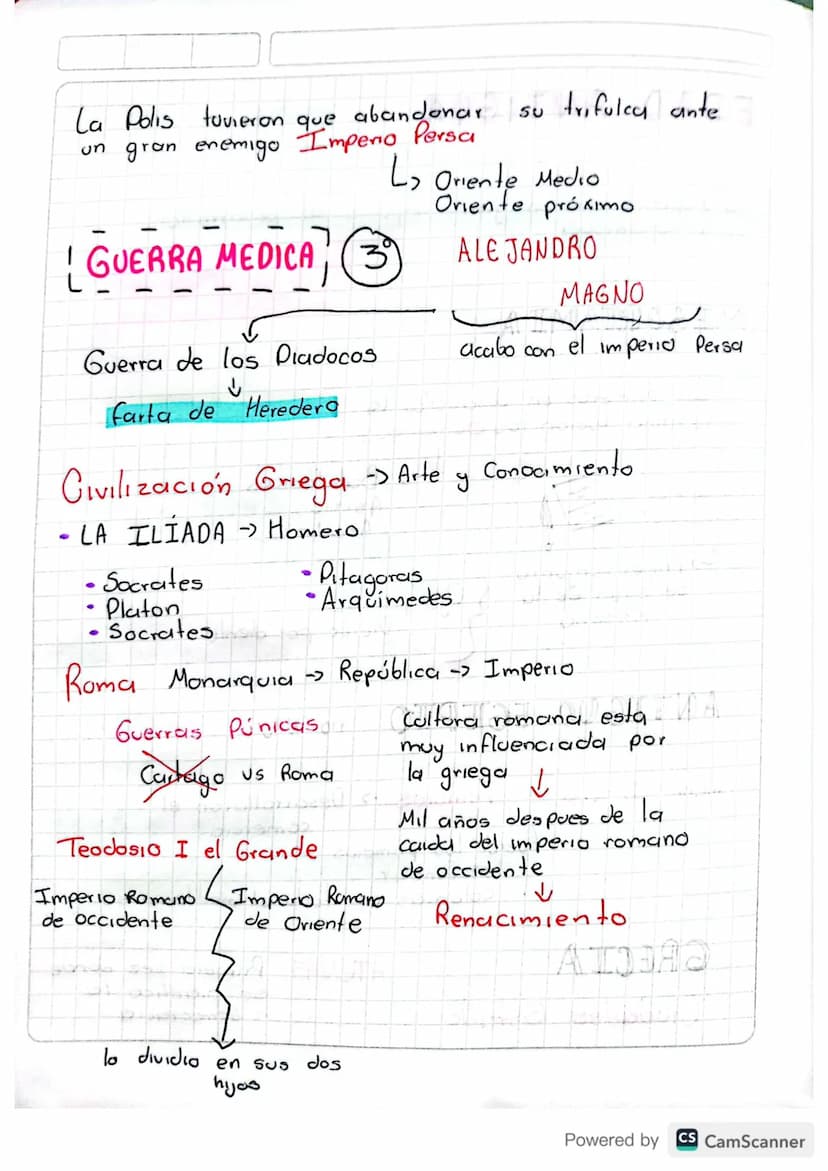 La Polis tuvieron que abandonar su trifulca ante
un gran enemigo Imperio Persa
↳ Oriente Medio
Oriente próximo
GUERRA MEDICA 3°
ALEJANDRO
MAGNO
acabo con el imperio Persa
Guerra de los Diadocos
↓
farta de Heredero
Civilización Griega -> Arte y Conocimiento
• LA ILÍADA -> Homero
• Socrates
• Platon
• Socrates
• Pitagoras
• Arquímedes
Roma Monarquia -> República -> Imperio
Guerras Púnicas
Cartago vs Roma
Cultora romana esta
muy influenciada por
la griega ↓
Mil años despues de la
caida del imperio romano
de occidente
↓
Renacimiento
Teodosio I el Grande
Imperio Romano
de occidente
Imperio Romano
de Oriente
lo dividio en sus dos
hijos
GRECIA
Powered by CS CamScanner